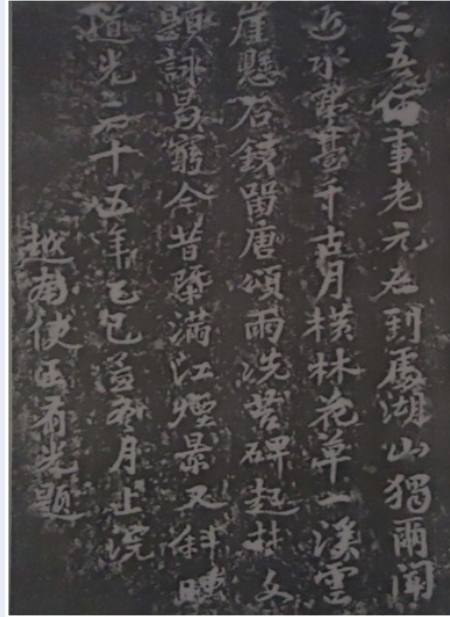 三五何事老元到處湖山獨爾聞
近水亭臺千古月橫林花草一溪雲
崖懸石鏡留唐頌雨洗苔碑起文
題詠曷窮今昔際滿江煙景又斜曛
道光二十五年乙巳孟冬月上浣
越南使王有光題